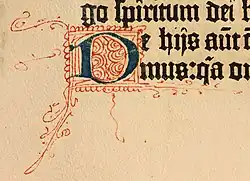 go sp̄iritum dei h
De hijs aūt
mus: q̄a o